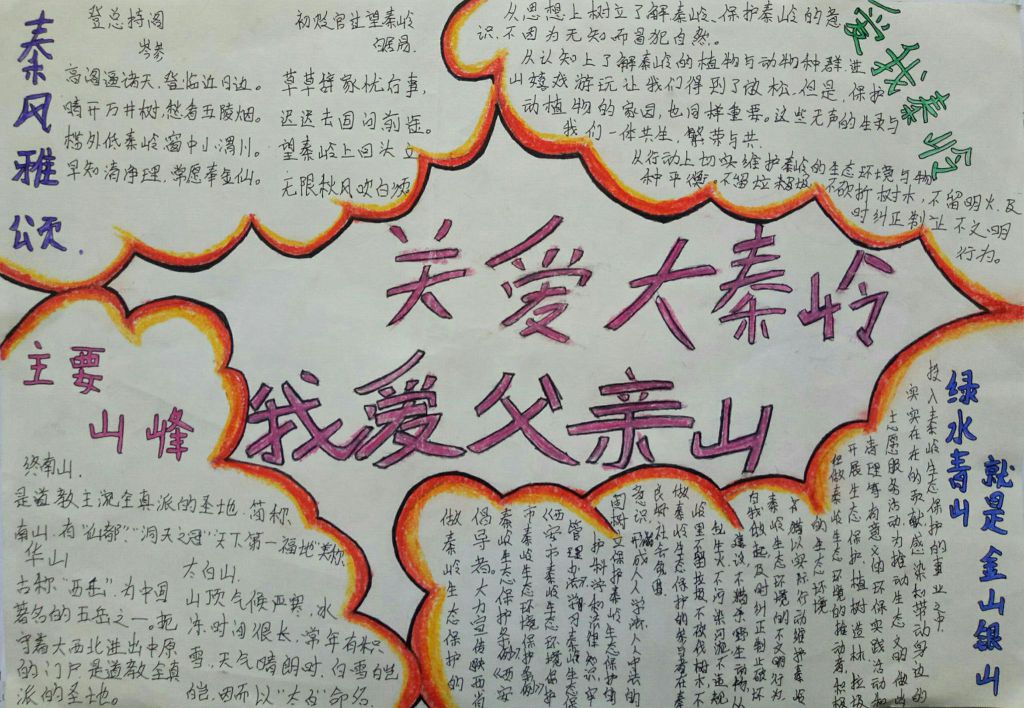 秦风雅颂
登总持阁
岑参
高阁逼诸天,登临近日边。
晴开万井树,愁看五陵烟。
槛外低秦岭,窗中小渭川。
早知清净理,常愿奉金仙。
初贬官过望秦岭
白居易
草草辞家忧后事,
迟迟去国问前途。
望秦岭上回头立
无限秋风吹白须
爱我秦岭
从思想上树立了解秦岭、保护秦岭的意
识,不因为无知而冒犯自然。
从认知上了解秦岭的植物与动物种群,进
山嬉戏游玩让我们得到了放松,但是,保护
动植物的家园,也同样重要。这些无声的生灵与
我们一体共生,繁荣与共。
从行动上切实维护秦岭的生态环境与物
种平衡。不留垃圾,不砍折树木,不留明火,及
时纠正制止不文明
行为。
关爱大秦岭
我爱父亲山
主要
山峰
终南山.
是道教主流全真派的圣地,简称
南山,有“仙都”、“洞天之冠”“天下第一福地”美称
华山
古称“西岳”,为中国
著名的五岳之一。把
守着大西北进出中原
的门户是道教全真
派的圣地。
太白山.
山顶气候严寒,冰
冻时间很长,常年有积
雪,天气晴朗时,白雪皑
皑,因而以“太白”命名
绿水青山
就是金山银山
投入秦岭生态保护的事业之中,
实实在在的奉献感染和带动身边的
志愿服务活动为推动生态文明做出
清理等有意义的环保实践活动和
开展生态保护、植树造林、垃圾
做秦岭生态环境的推动者,积极
的生态环境
秦岭生态环境的不文明行为
自我做起,及时纠正制止破坏
岭里不留垃圾、不砍伐树木、不
做秦岭生态保护的参与者在秦
良好社会氛围
意识,形成人人学法、人人守法的
市秦岭生态环境保护条例》
秦岭生态保护条例》《西安
倡导者。大力宣传陕西省
做秦岭生态保护的